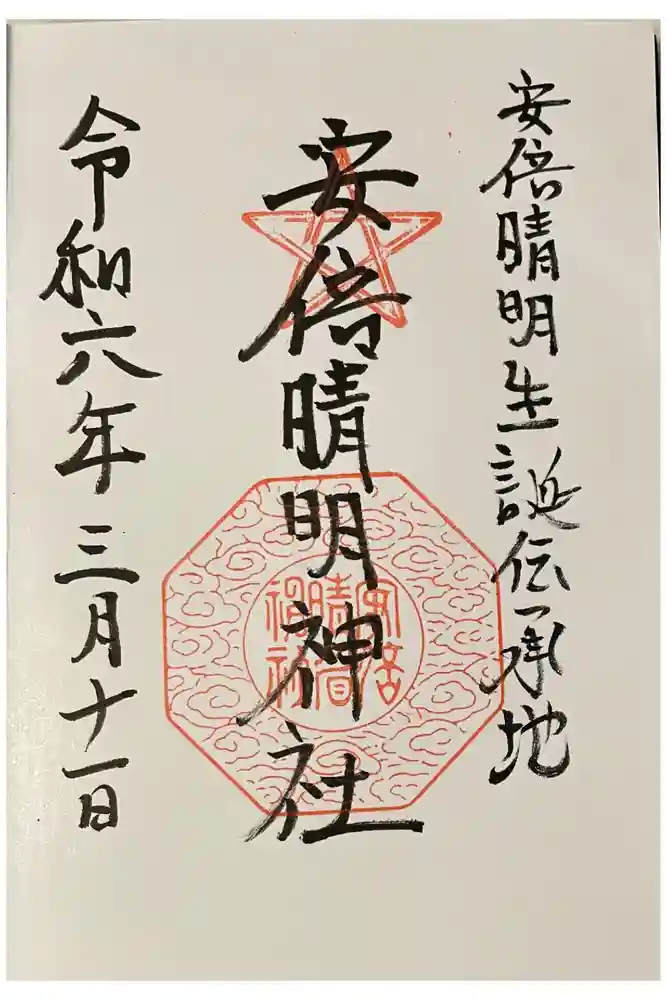 安倍晴明生誕伝承地
安倍晴明神社
安倍
晴明
神社
令和六年三月十一日